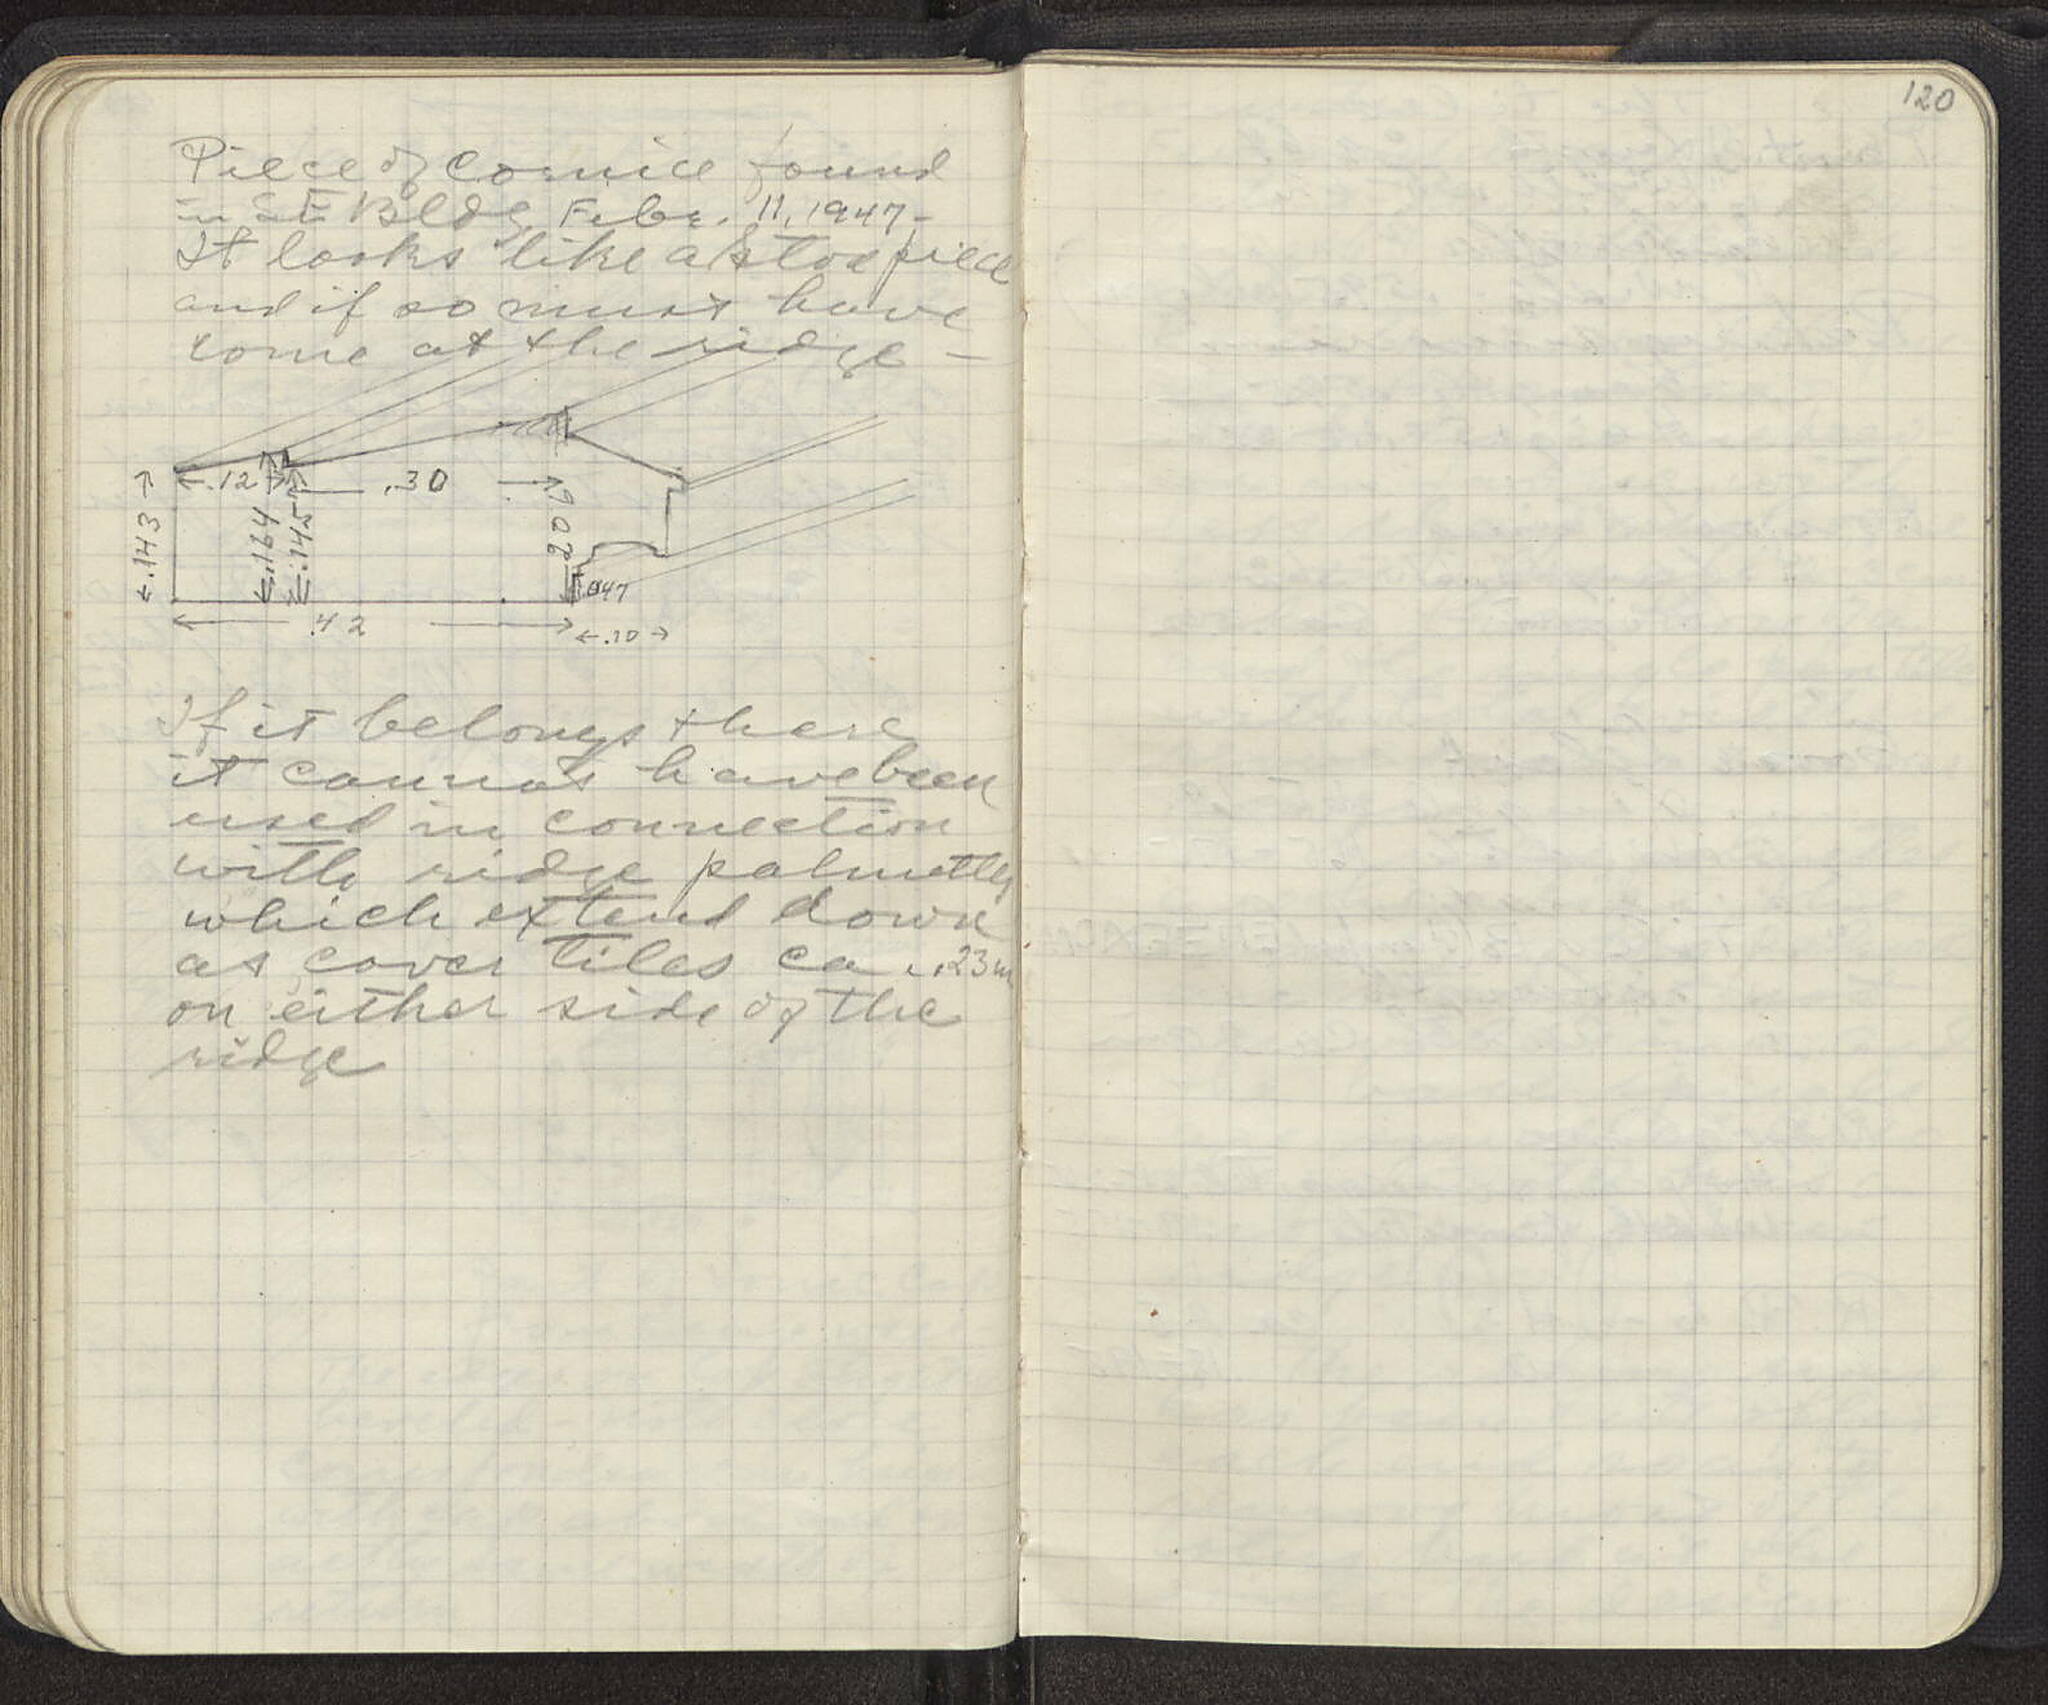 120
Piece of cornice found
in SE Bldg Febr. 11, 1947 -
It looks like a stoa piece
and if so must have
come at the ridge -
.12
.30
.143
.164
.145
.206
.047
.42
.10
If it belongs there
it cannot have been
used in connection
with ridge palmettes
which extend down
as cover tiles ca. .23m
on either side of the
ridge